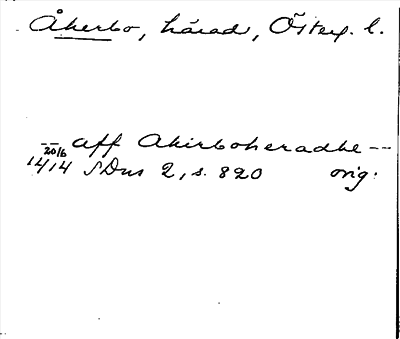 Åkerbo, härad, Österg. l.
-- aff Akirboheradhe --
20/6 1414 SDns 2, s. 820 orig.